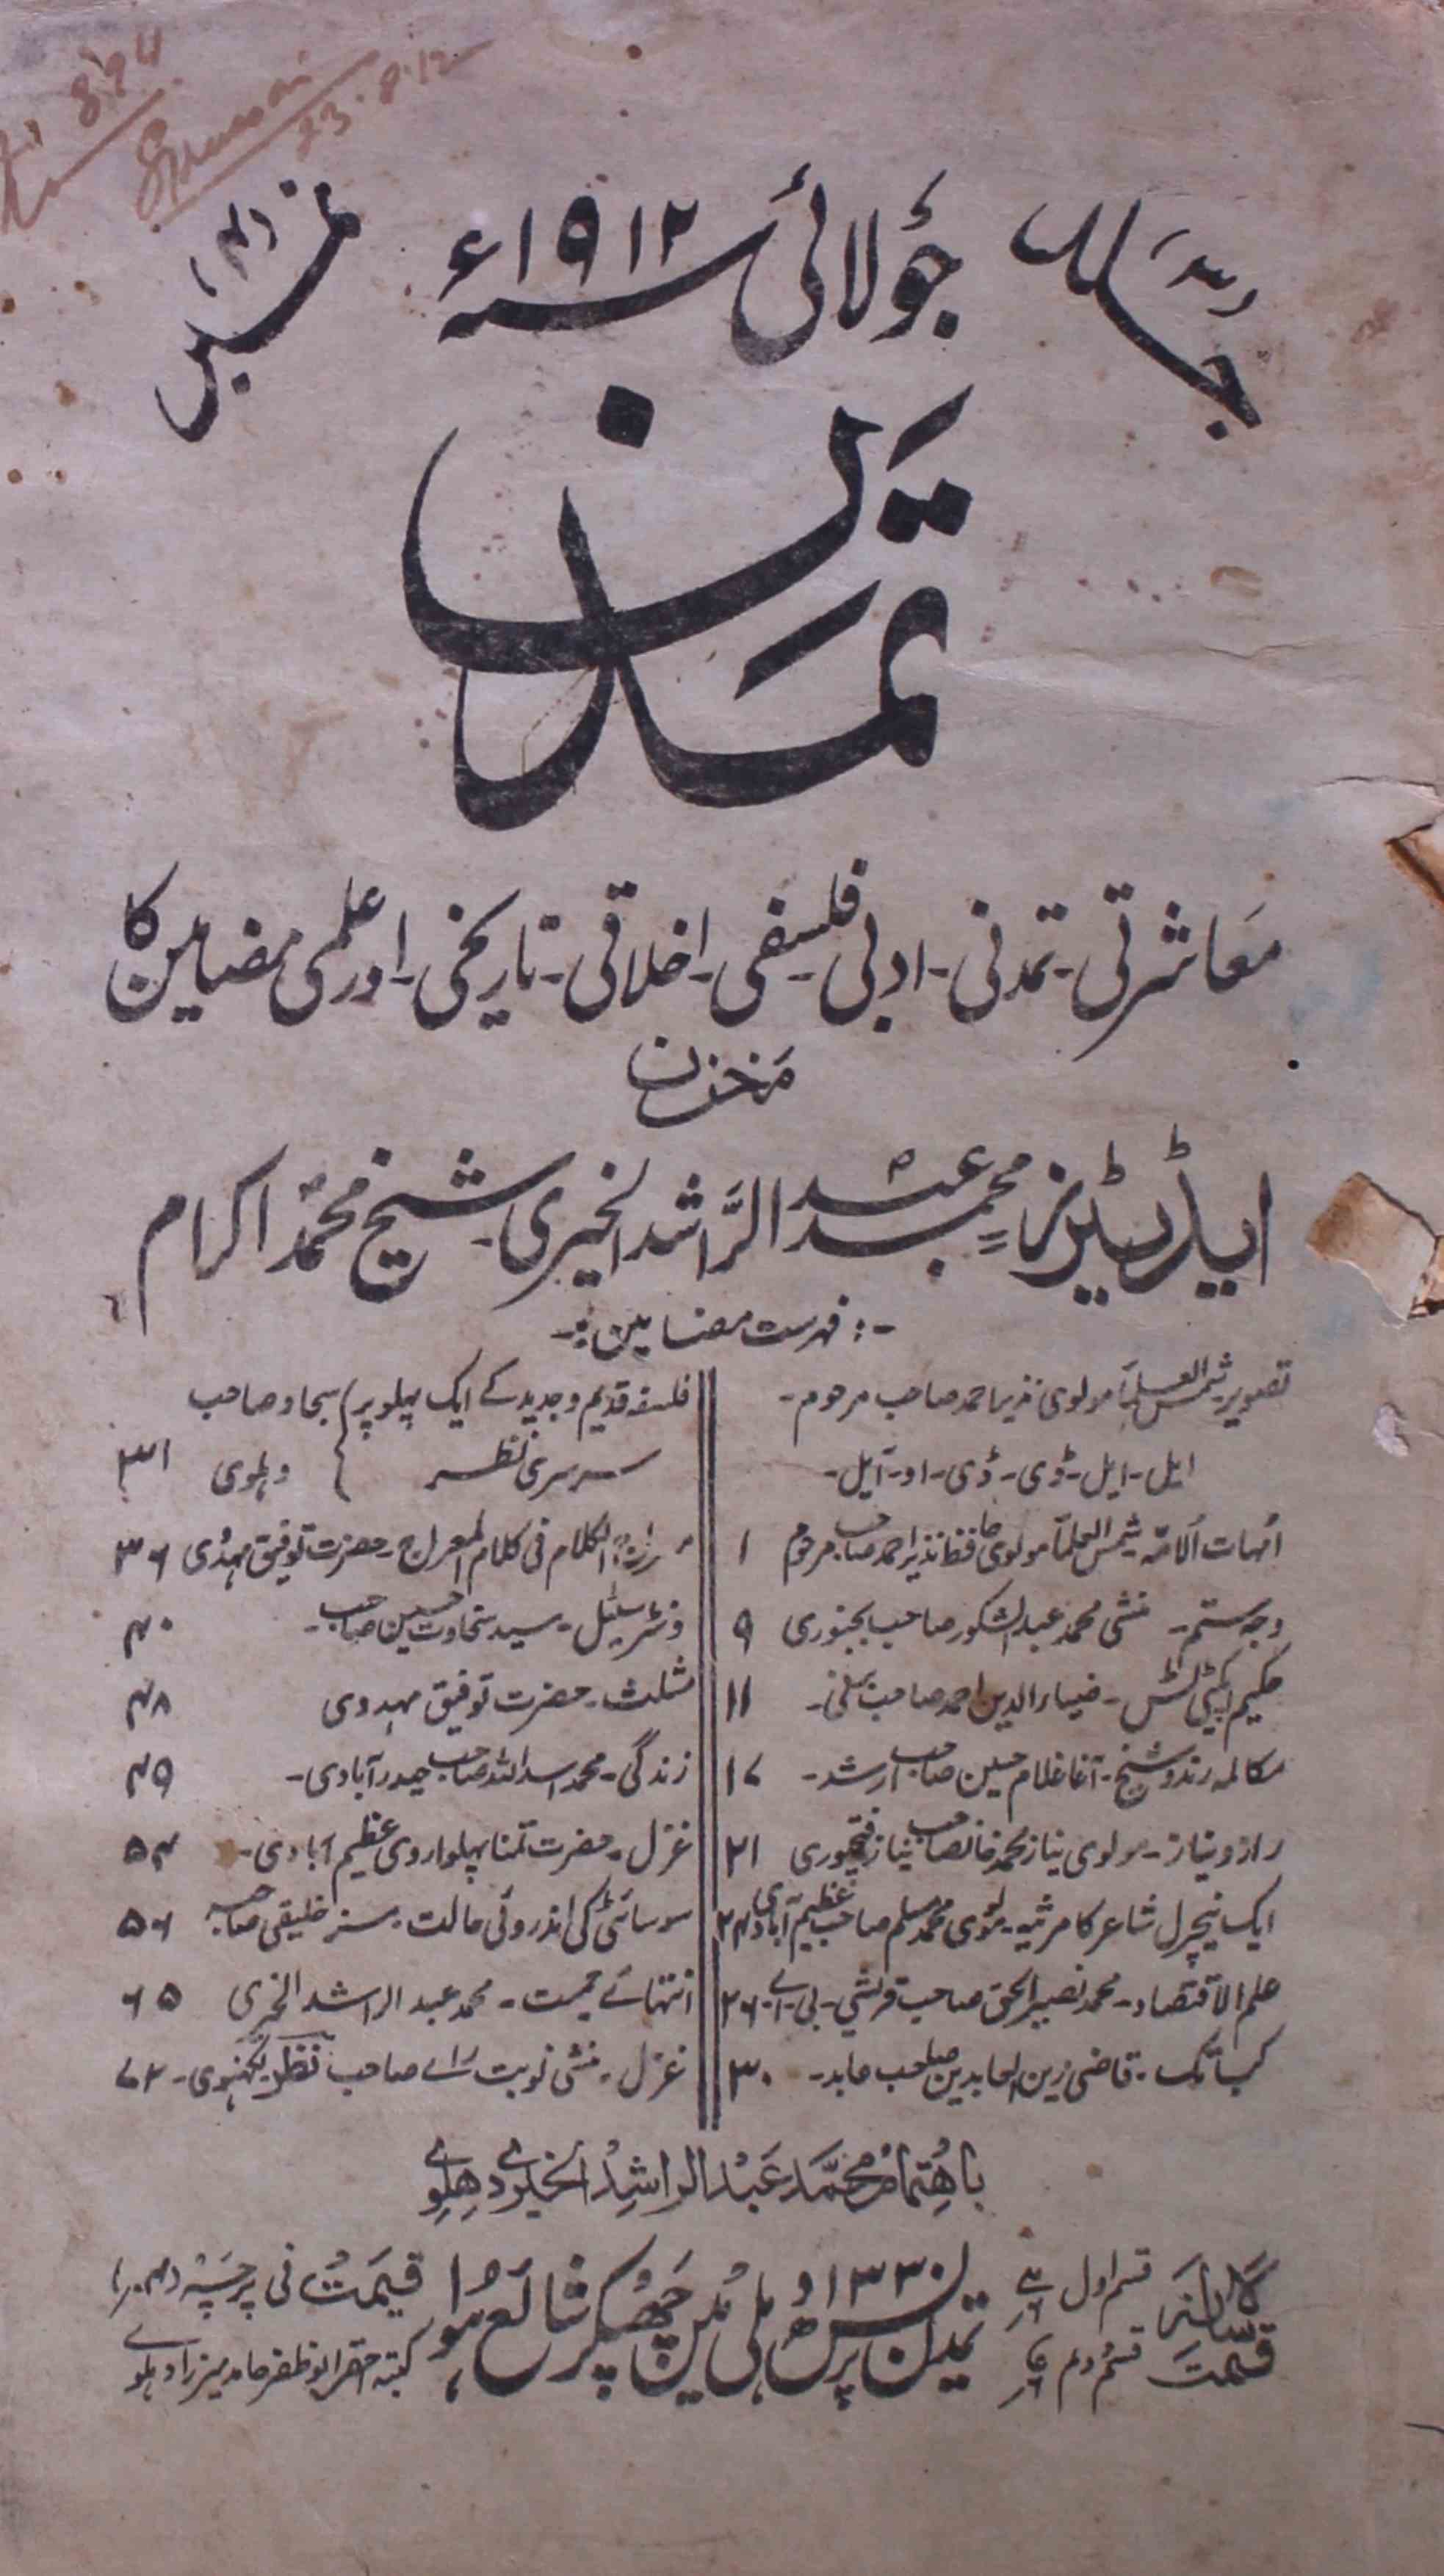 894
23.8.12
جلد (۳) جولائی سنہ ۱۹۱۲ء نمبر (۴)
تمدن
معاشرتی۔ تمدنی۔ ادبی فلسفی۔ اخلاقی۔ تاریخی۔ اور علمی مضامین کا
مَخزن
ایڈیٹرز محمد عبد الرَّاشد الخیری۔ شیخ محمّد اکرام
-: فہرست مضامین :-
تصویر شمس العلما مولوی نذیر احمد صاحب مرحوم۔
ایل۔ ایل۔ ڈی۔ ڈی۔ او۔ ایل۔
امہات الامّہ شمس العلما مولوی حافظ نذیر احمد صاحب مرحوم ۱
وجہ ستم۔ منشی محمد عبد الشکور صاحب بجنوری ۹
حکیم اپکٹی ٹس۔ ضیاء الدین احمد صاحب برنی۔ ۱۱
مکالمہ رند و شیخ۔ آغا غلام حسین صاحب ارشد۔ ۱۷
راز و نیاز۔ مولوی نیاز محمد خانصاحب نیاز فتحپوری ۲۱
ایک نیچرل شاعر کا مرثیہ۔ مولوی محمد مسلم صاحب عظیم آبادی ۲۴
علم الاقتصاد۔ محمد نصیر الحق صاحب قریشی۔ بی۔ اے۔ ۲۶
کب تک۔ قاضی زین العابدین صاحب عابد۔ ۳۰
فلسفہ قدیم و جدید کے ایک پہلو پر } سجاد صاحب
سرسری نظر } دہلوی ۳۱
الکلام فی کلام المعراج۔ حضرت توفیق مہدوی ۳۶
سید سخاوت حسین صاحب۔ ۴۰
مثلث۔ حضرت توفیق مہدوی ۴۸
زندگی۔ محمد اسد اللہ صاحب حیدرآبادی۔ ۴۹
غزل۔ حضرت تمنا پھلواروی عظیم آبادی۔ ۵۴
سوسائٹی کی اندرونی حالت۔ مسز خلیقی صاحبہ ۵۶
انتہائے حمیت۔ محمد عبد الراشد الخیری ۶۵
غزل۔ منشی نوبت رائے صاحب نظر لکھنوی۔ ۷۲
باہتمام محمَّد عَبْد الراشِدُ الخیری دھلوی
سالانہ قیمت قسم اول قسم دوم
تمدن پریس دہلی میں چھپکر شائع ہوا
۱۳۳۰
قیمت فی پرچہ (۴ر)
کتبہ احقر ابو ظفر حامد میرزا دہلوی